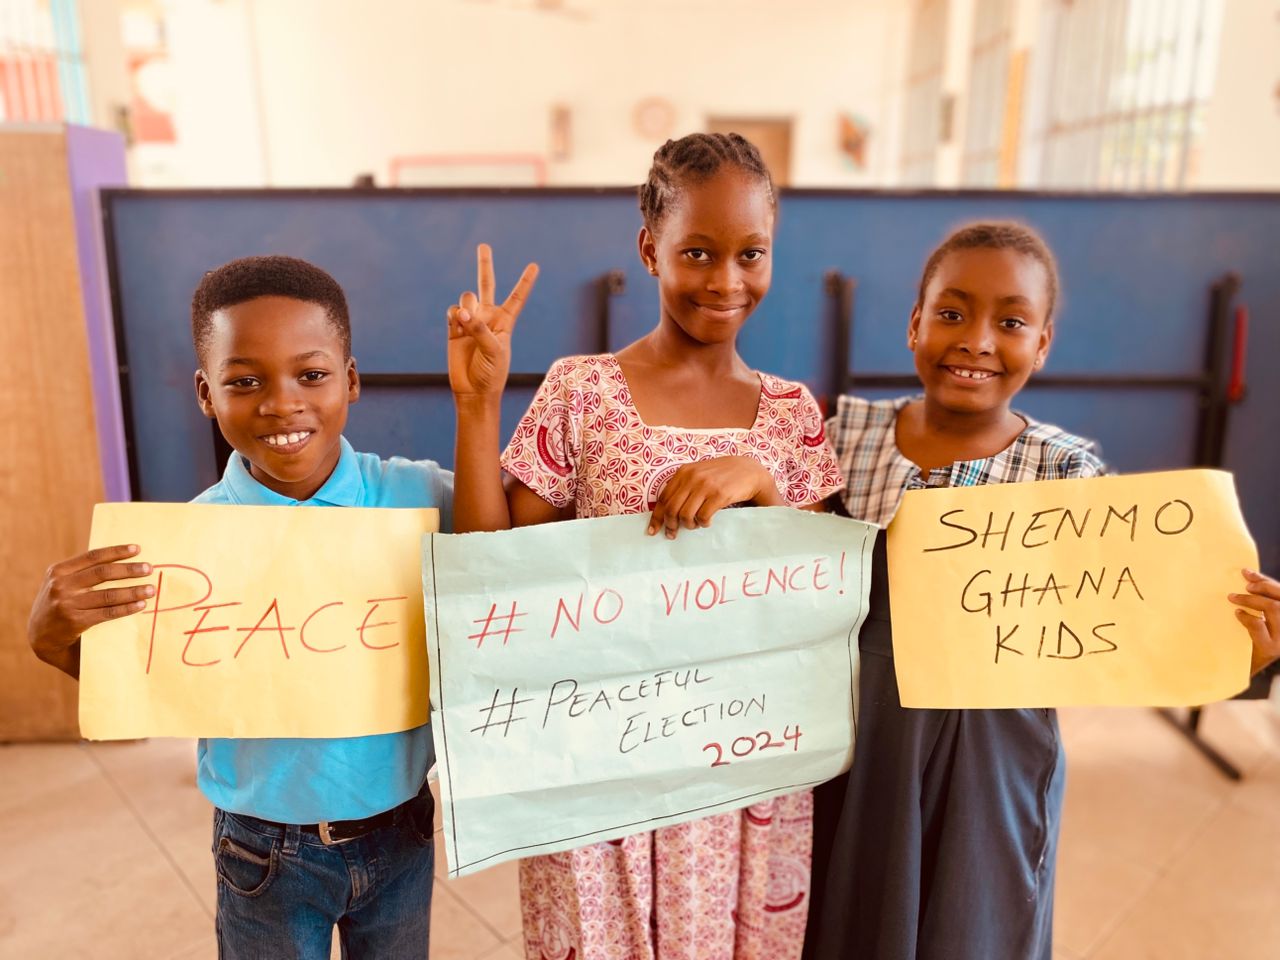 PEACE
# NO VIOLENCE!
# PEACEFUL
ELECTION
2024
SHENMO
GHANA
KIDS